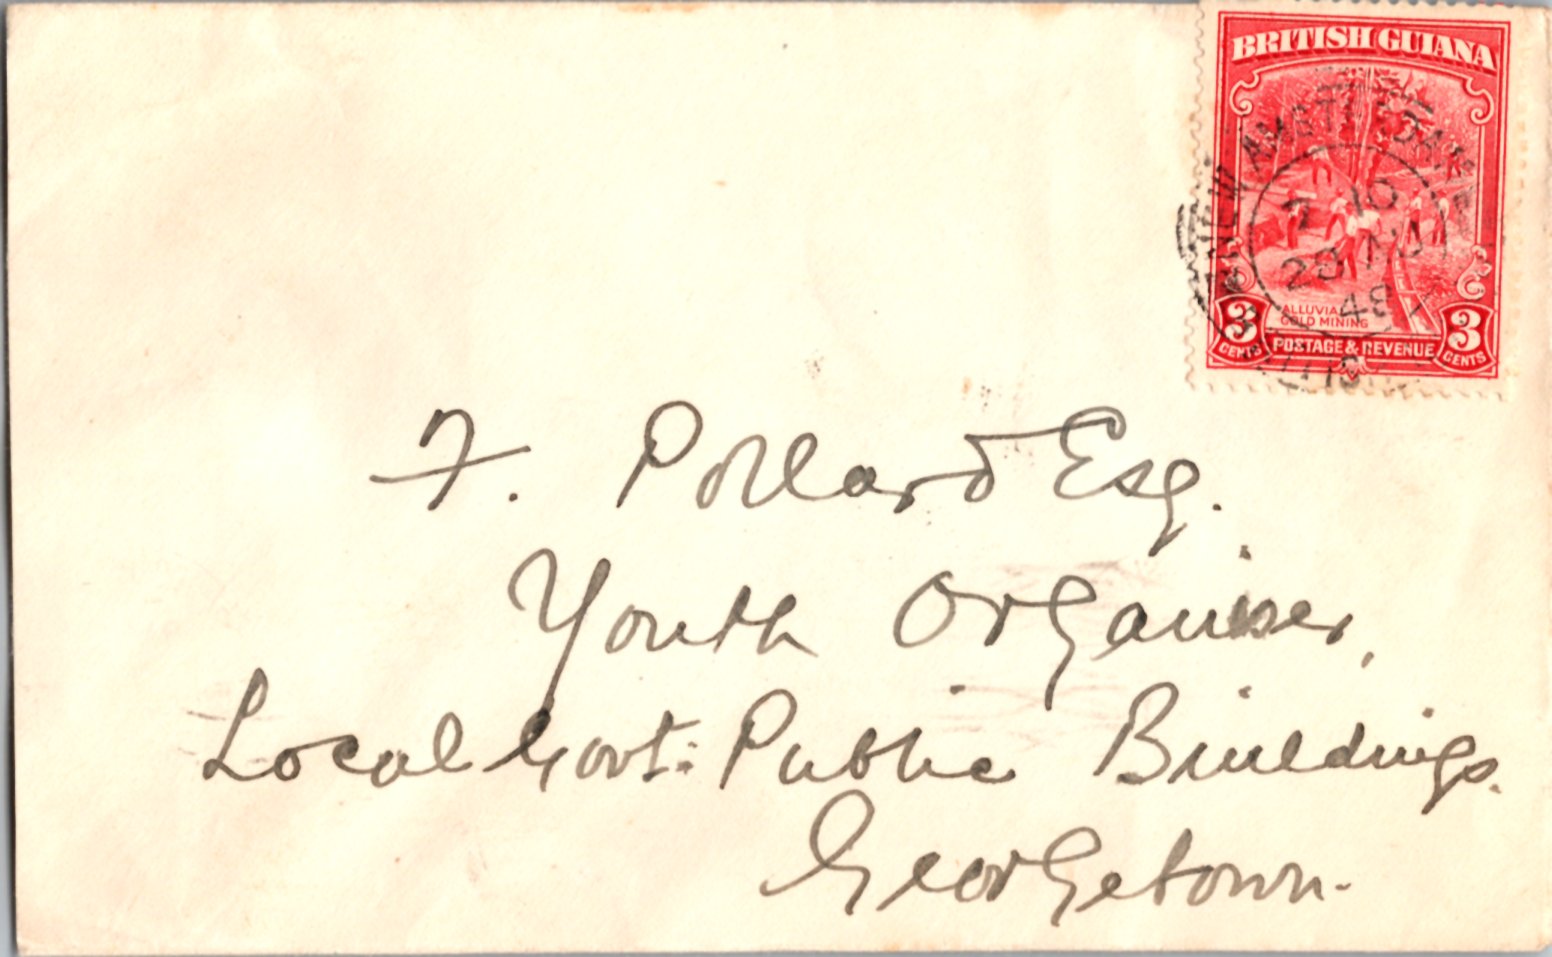 BRITISH GUIANA
NEW AMSTERDAM
10
AU
48
ALLUVIAL
GOLD MINING
3 CENTS
POSTAGE & REVENUE
3 CENTS
F. Pollard Esq.
Youth Organiser,
Local Govt: Public Buildings.
Georgetown.